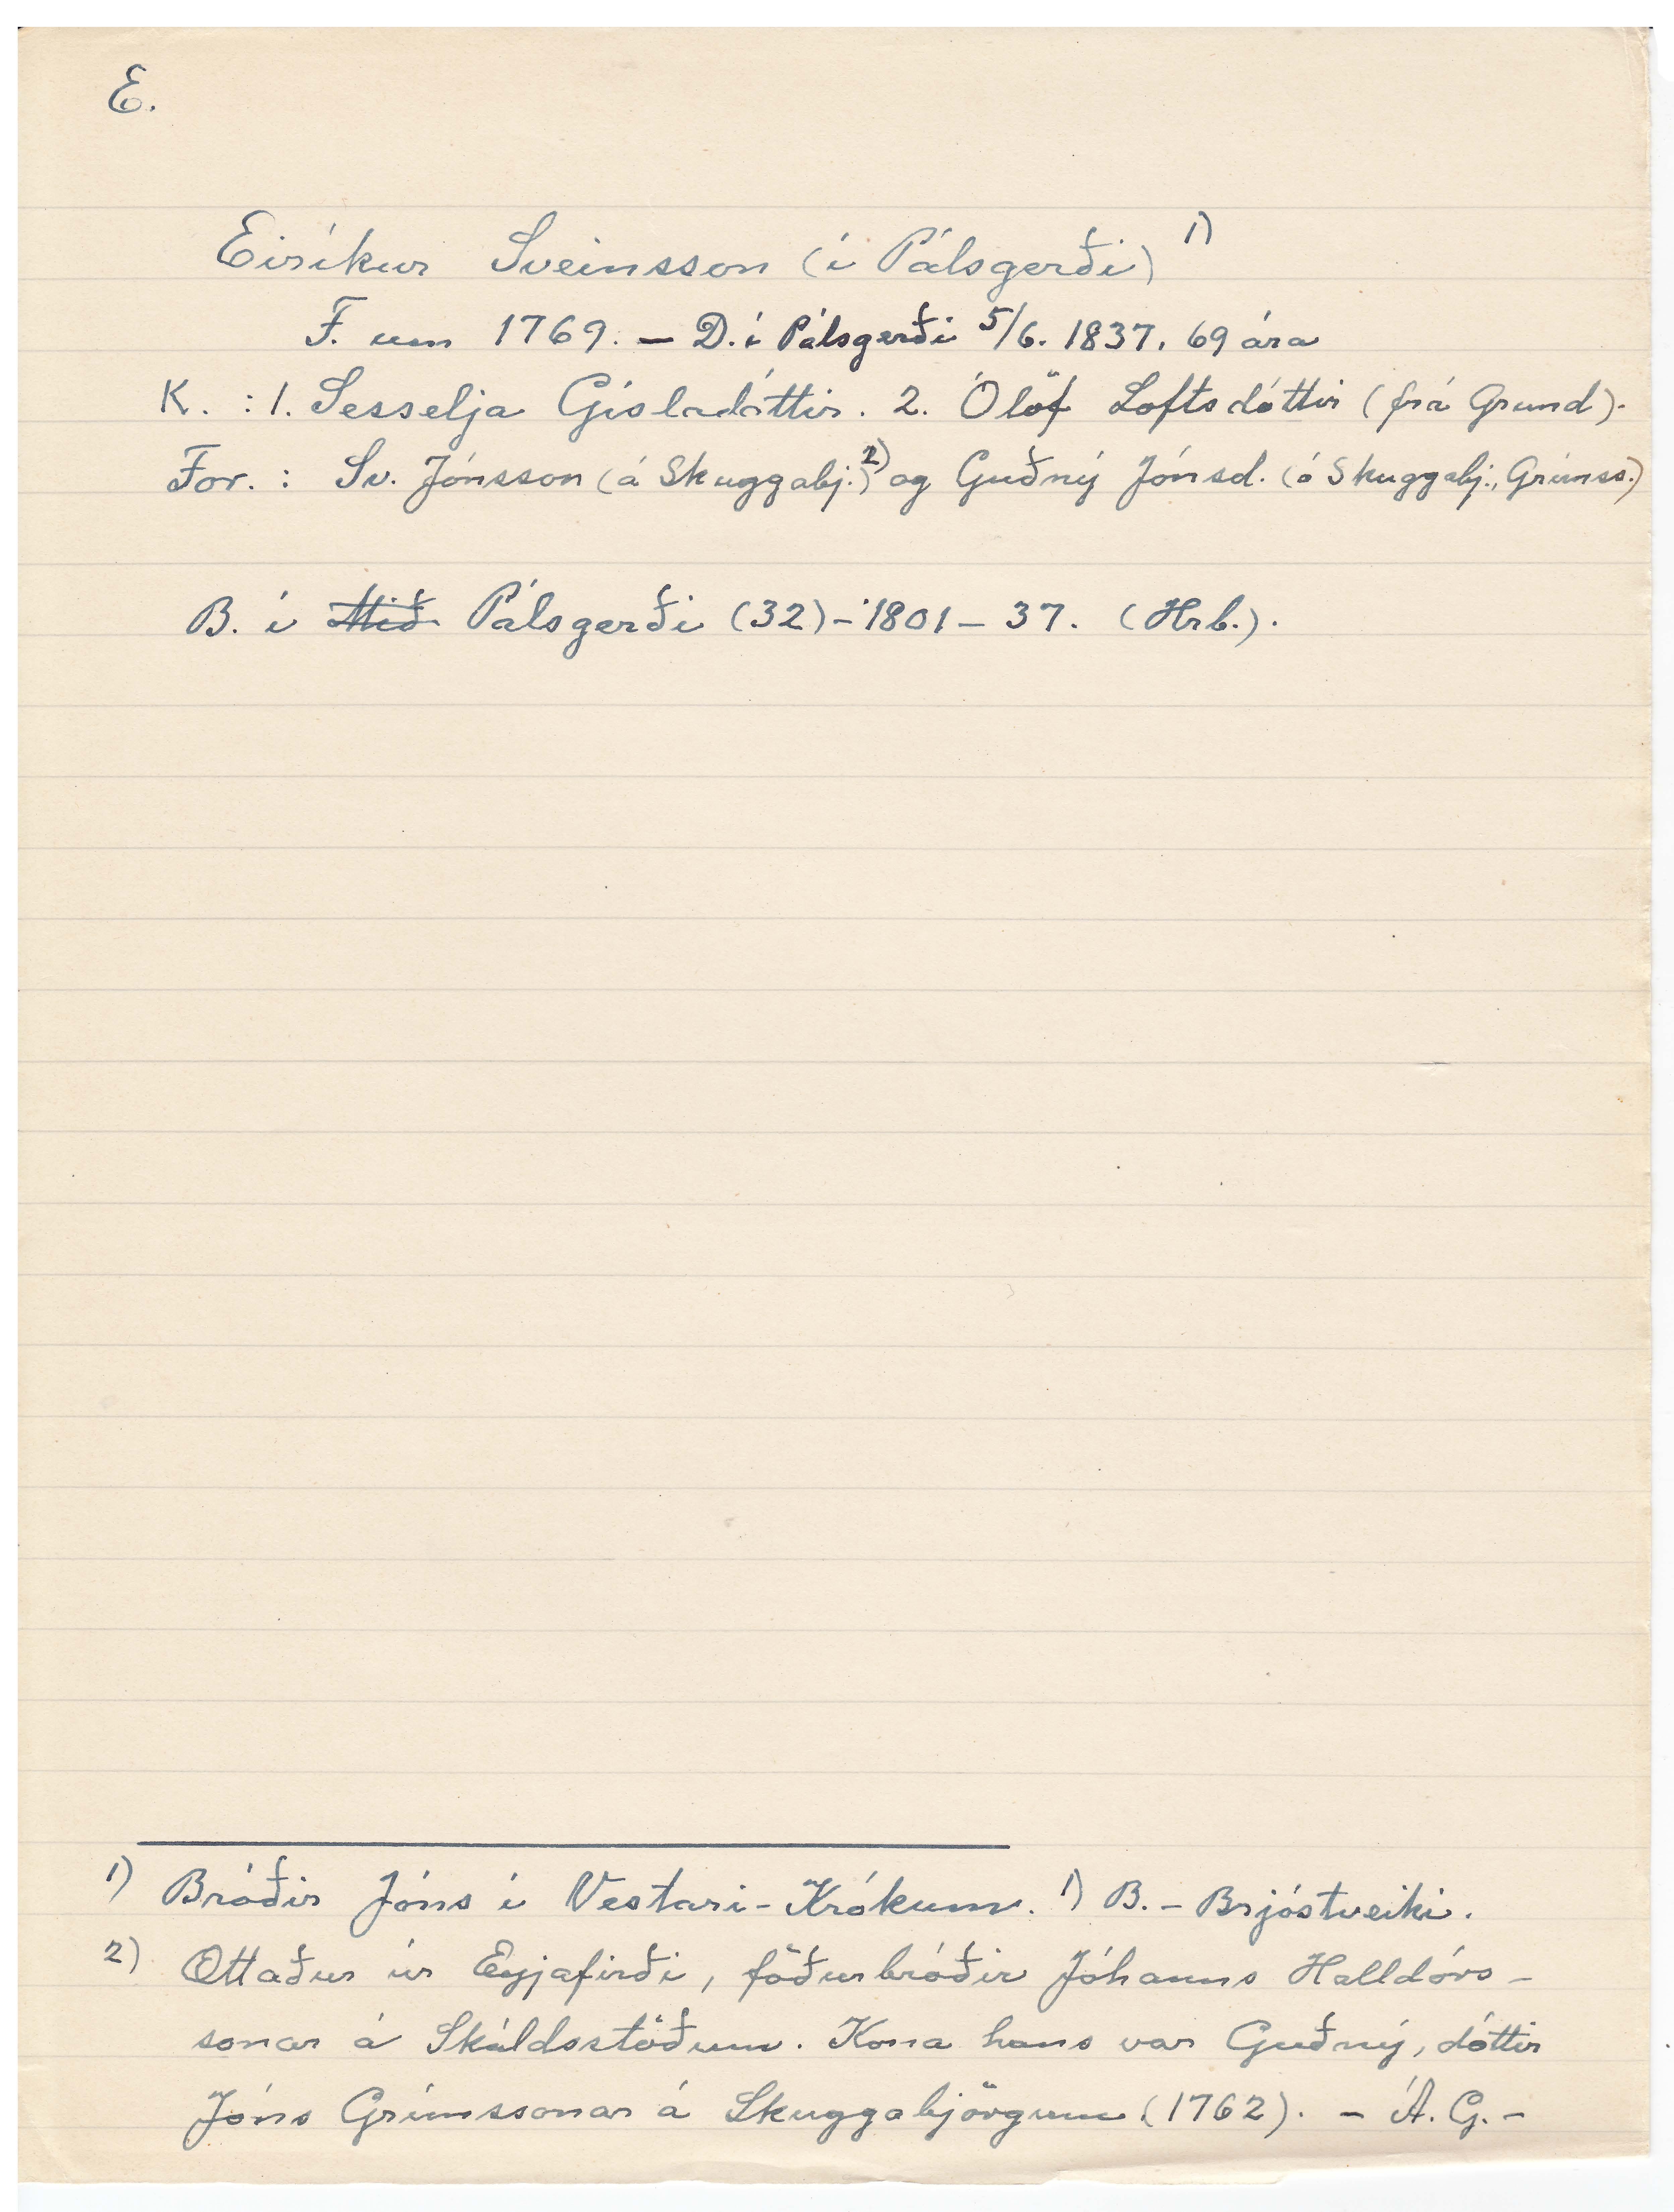 E.
Eiríkur Sveinsson (í Pálsgerði) 1)
F. um 1769. — D. í Pálsgerði 5/6. 1837. 69 ára
K. : 1. Sesselja Gísladóttir. 2. Ólöf Loftsdóttir (frá Grund).
For. : Sv. Jónsson (á Skuggabj.) 2) og Guðný Jónsd. (á Skuggabj., Grímss.)
B. í Mið Pálsgerði (32) - 1801 - 37. (Hrb.).
1) Bróðir Jóns í Vestari-Krókum. 1) B. - Brjóstveiki.
2) Ættaður úr Eyjafirði, föðurbróðir Jóhanns Halldórs-
sonar á Skáldsstöðum. Kona hans var Guðný, dóttir
Jóns Grímssonar á Skuggabjörgum (1762). - Á. G. -